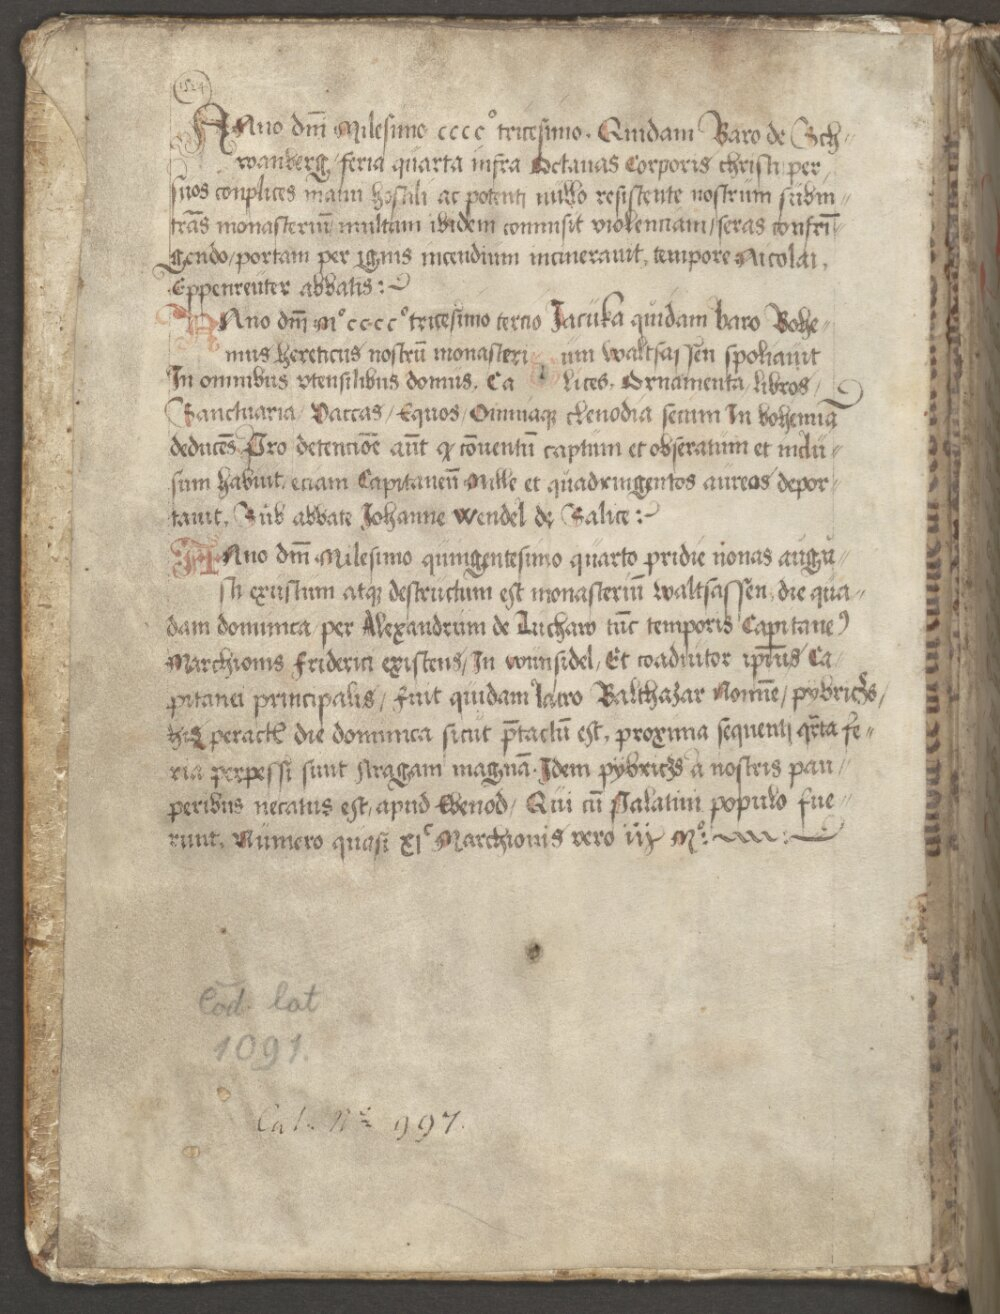 1524
ANno dm̄ Milesimo cccc° tricesimo. Quidam Baro de Sch⸗
wanberg, feria quarta infra Octauas Corporis christi per
suos conplices manu hostili ac potenti nullo resistente nostrum subin⸗
trās monasteriū multam ibidem commisit violentiam/ seras confrī⸗
gendo/ portam per ignis incendium incinerauit, tempore Nicolai
Eppenreuter abbatis:
ANno dm̄ M° cccc° tricesimo tercio Jacuka quidam baro Bohe⸗
mus hereticus nostrū monasterium waltsassen spoliauit
In omnibus vtensilibus domus. Calices, Ornamenta/ libros/
Sanctuaria/ Vaccas/ Equos/ Omniaqz clenodia secum In bohemia
deducēs Pro detencioē aūt qz cōuentū captum et obseratum et inclu⸗
sum habuit, eciam Capitaneū Mille et quadringentos aureos depor⸗
tauit, Sub abbate Johanne Wendel de Salice:
ANno dm̄ Milesimo quingentesimo quarto pridie nonas augu⸗
sti exustum atqz destructum est monasteriū waltsassen, die qua⸗
dam dominica/ per Alexandrum de Luchaw tūc temporis Capitane⁹
Marchionis friderici existens/ In wunsidel/ Et coadiutor ipīus Ca⸗
pitanei principalis/ fuit quidam latro Balthazar Nomīe/ pybrichs/
his peractꝭ die dominica sicut p̄tactū est, proxima sequenti qr̄ta fe⸗
ria perpessi sunt stragam magnā. Idem pybrichs a nostris pau⸗
peribus necatus est, apud Ebenod/ Qui cū Palatini populo fue⸗
runt, Numero quasi XIᶜ Marchionis vero iijx M°:
Cod. lat
1091.
Cat. Nº 997.